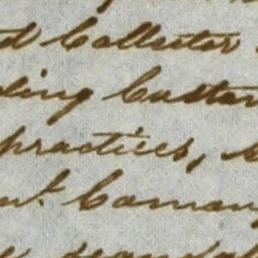 d Collector
ding Custom
practices, s
nt. Comman